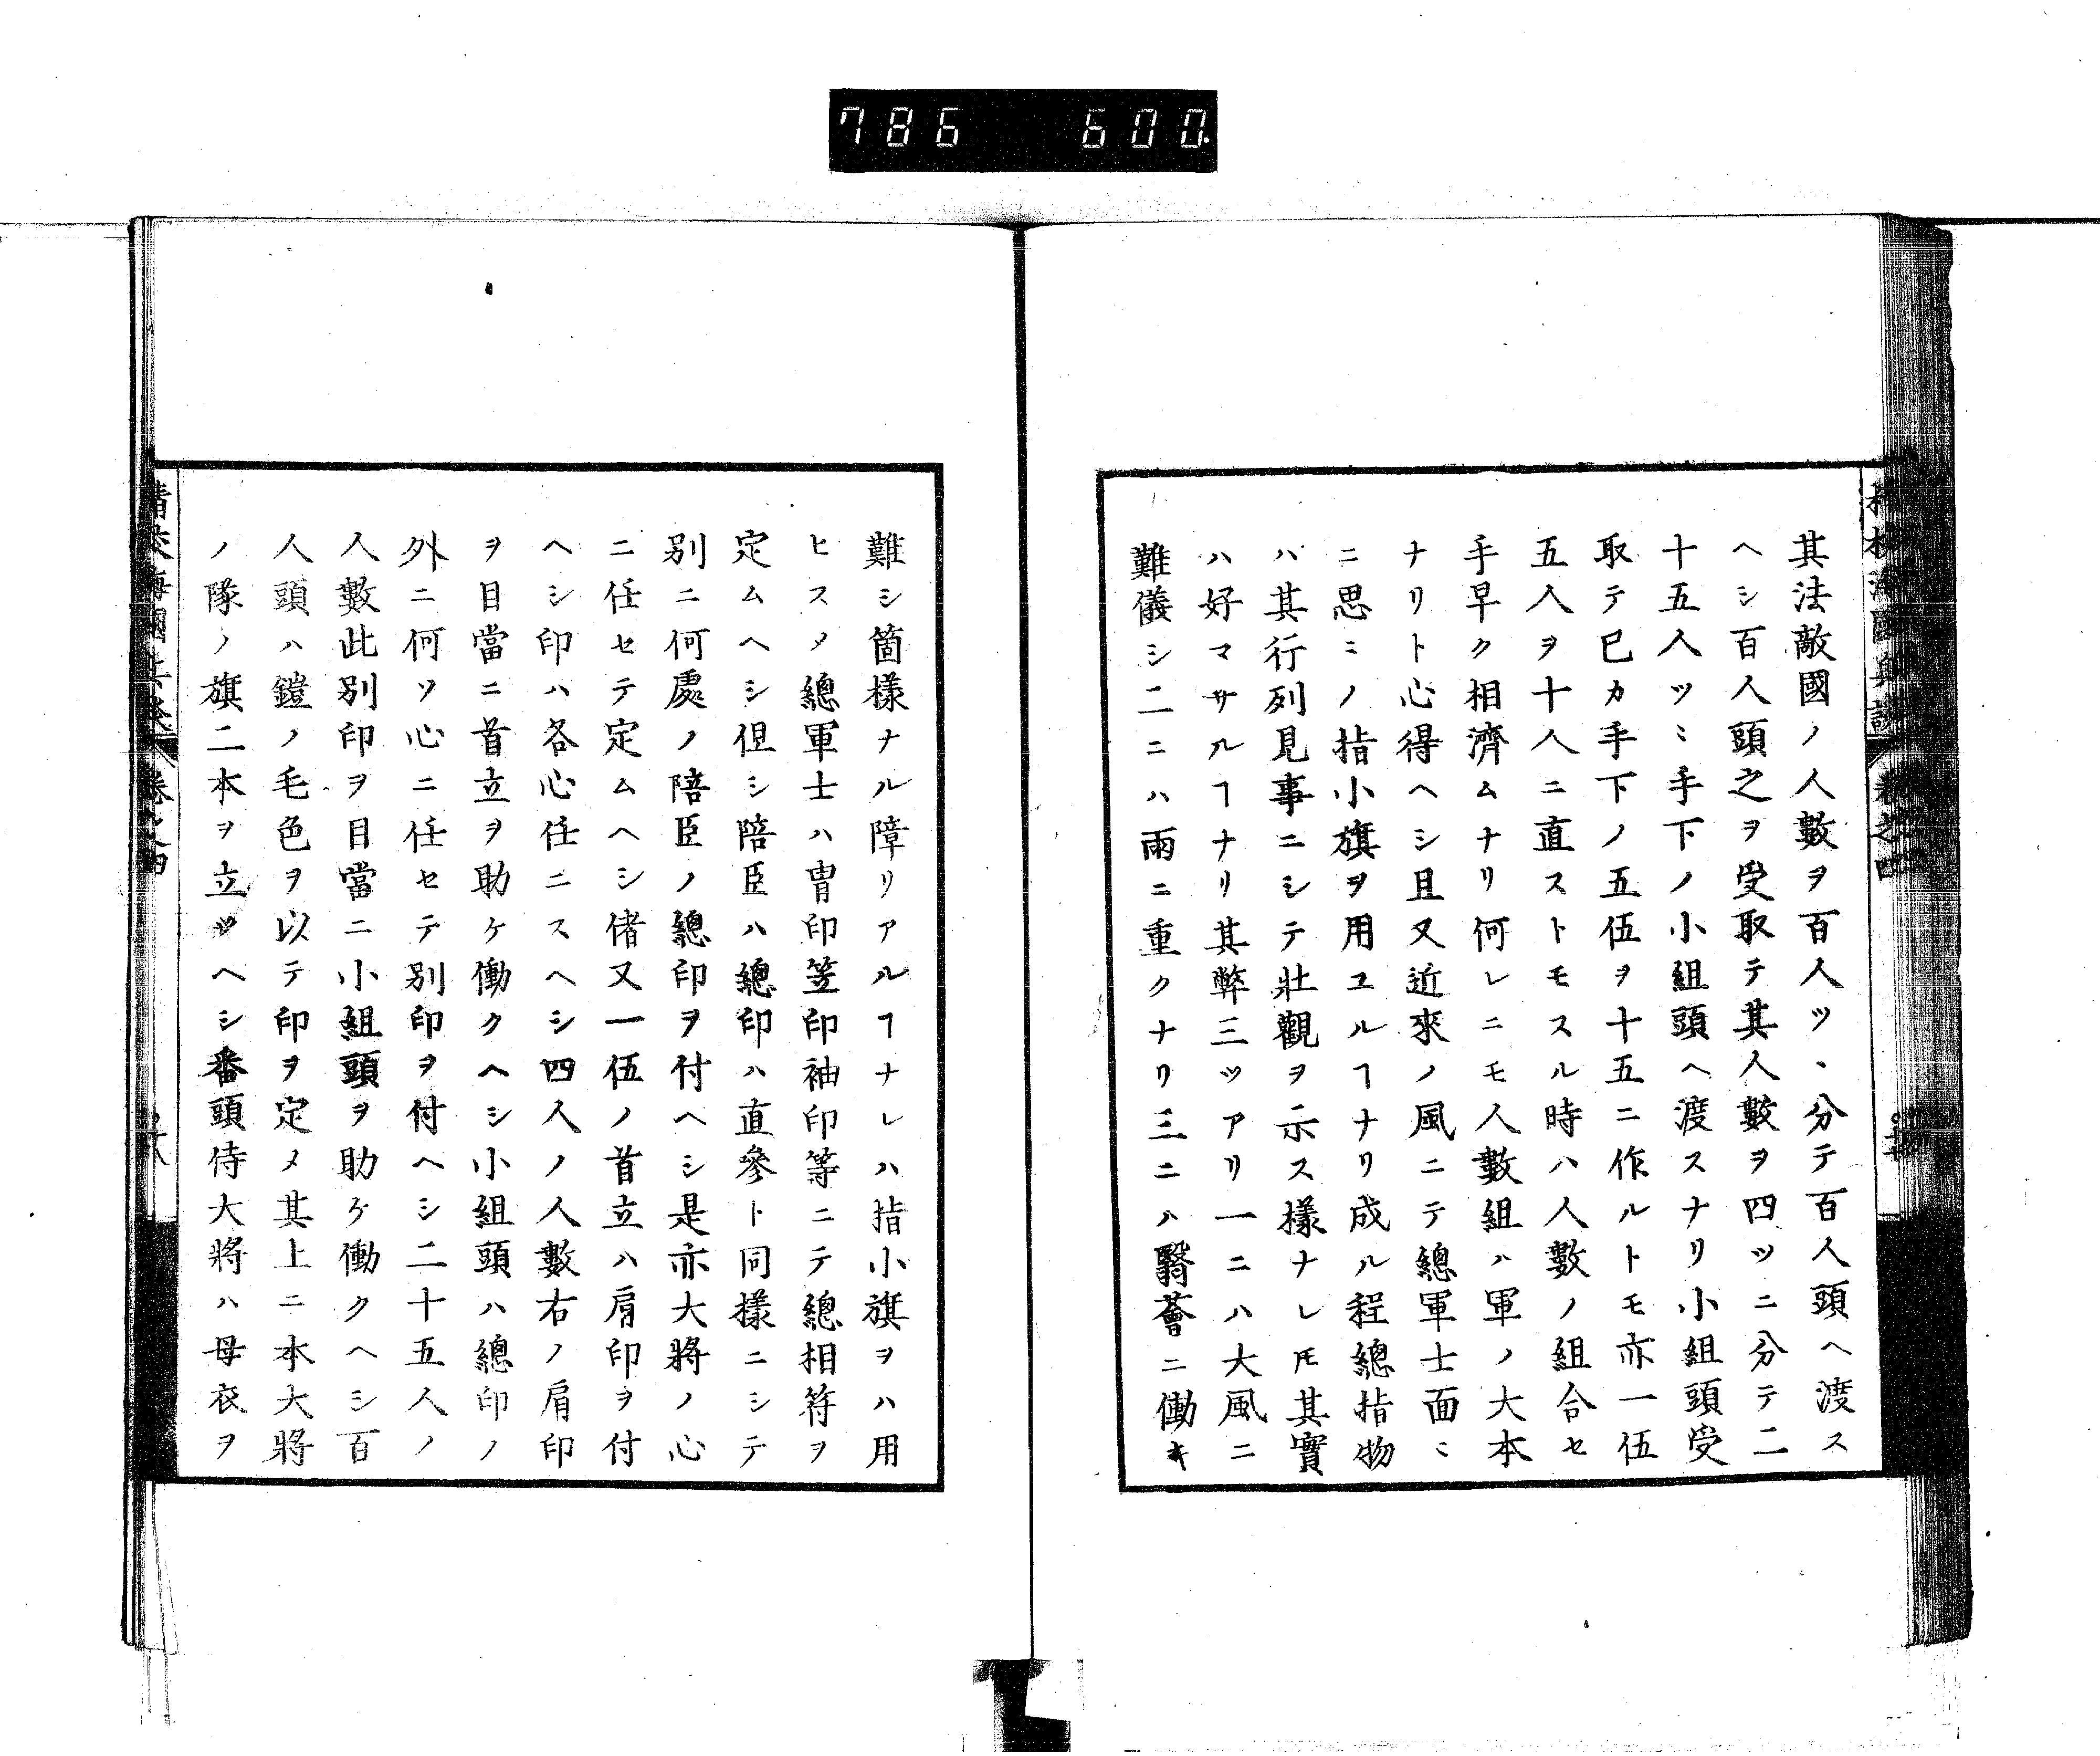 786 600
其法敵國ノ人數ヲ百人ツヽ分テ百人頭ヘ渡ス
ヘシ百人頭之ヲ受取テ其人數ヲ四ツニ分テ二
十五人ツヽ手下ノ小組頭ヘ渡スナリ小組頭受
取テ已カ手下ノ五伍ヲ十五ニ作ルトモ亦一伍
五人ヲ十人ニ直ストモスル時ハ人數ノ組合セ
手早ク相濟ムナリ何レニモ人數組ハ軍ノ大本
ナリト心得ヘシ且又近來ノ風ニテ總軍士面〻
ニ思〻ノ指小旗ヲ用ユルヿナリ成ル程總指物
ハ其行列見事ニシテ壯觀ヲ示ス樣ナレ𪜈其實
ハ好マサルヿナリ其弊三ツアリ一ニハ大風ニ
難儀シ二ニハ雨ニ重クナリ三ニハ翳薈ニ働キ
難シ箇樣ナル障リアルヿナレハ指小旗ヲハ用
ヒスメ總軍士ハ冑印笠印袖印等ニテ總相符ヲ
定ムヘシ但シ陪臣ハ總印ハ直參ト同樣ニシテ
別ニ何處ノ陪臣ノ總印ヲ付ヘシ是亦大將ノ心
ニ任セテ定ムヘシ偖又一伍ノ首立ハ肩印ヲ付
ヘシ印ハ各心任ニスヘシ四人ノ人數右ノ肩印
ヲ目當ニ首立ヲ助ケ働クヘシ小組頭ハ總印ノ
外ニ何ソ心ニ任セテ別印ヲ付ヘシ二十五人ノ
人數此別印ヲ目當ニ小組頭ヲ助ケ働クヘシ百
人頭ハ鎧ノ毛色ヲ以テ印ヲ定メ其上ニ本大將
ノ隊ノ旗二本ヲ立ツヘシ番頭侍大將ハ母衣ヲ
卷之四